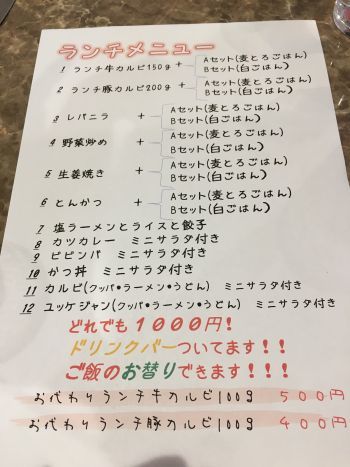 ランチメニュー
1 ランチ牛カルビ150g + Aセット(麦とろごはん)
Bセット(白ごはん)
2 ランチ豚カルビ200g + Aセット(麦とろごはん)
Bセット(白ごはん)
3 レバニラ + Aセット(麦とろごはん)
Bセット(白ごはん)
4 野菜炒め + Aセット(麦とろごはん)
Bセット(白ごはん)
5 生姜焼き + Aセット(麦とろごはん)
Bセット(白ごはん)
6 とんかつ + Aセット(麦とろごはん)
Bセット(白ごはん)
7 塩ラーメンとライスと餃子
8 カツカレー ミニサラダ付き
9 ビビンバ ミニサラダ付き
10 かつ丼 ミニサラダ付き
11 カルビ(クッパ•ラーメン•うどん) ミニサラダ付き
12 ユッケジャン(クッパ•ラーメン•うどん) ミニサラダ付き
どれでも1000円!
ドリンクバーついてます!!
ご飯のお替りできます!!!
お代わりランチ牛カルビ100g 500円
お代わりランチ豚カルビ100g 400円